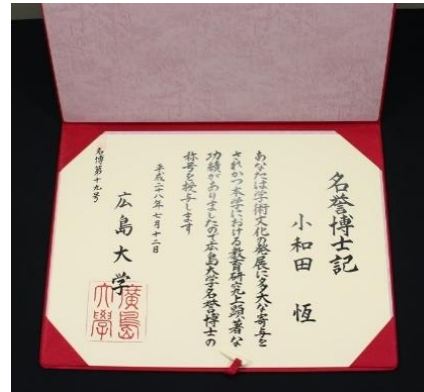 名誉博士記
小和田 恆
あなたは学術文化の発展に多大な寄与を
されかつ本学における教育研究上顕著な
功績がありましたので広島大学名誉博士の
称号を授与します
平成二十八年七月十二日
広島大学
廣島大學
名博第十九号